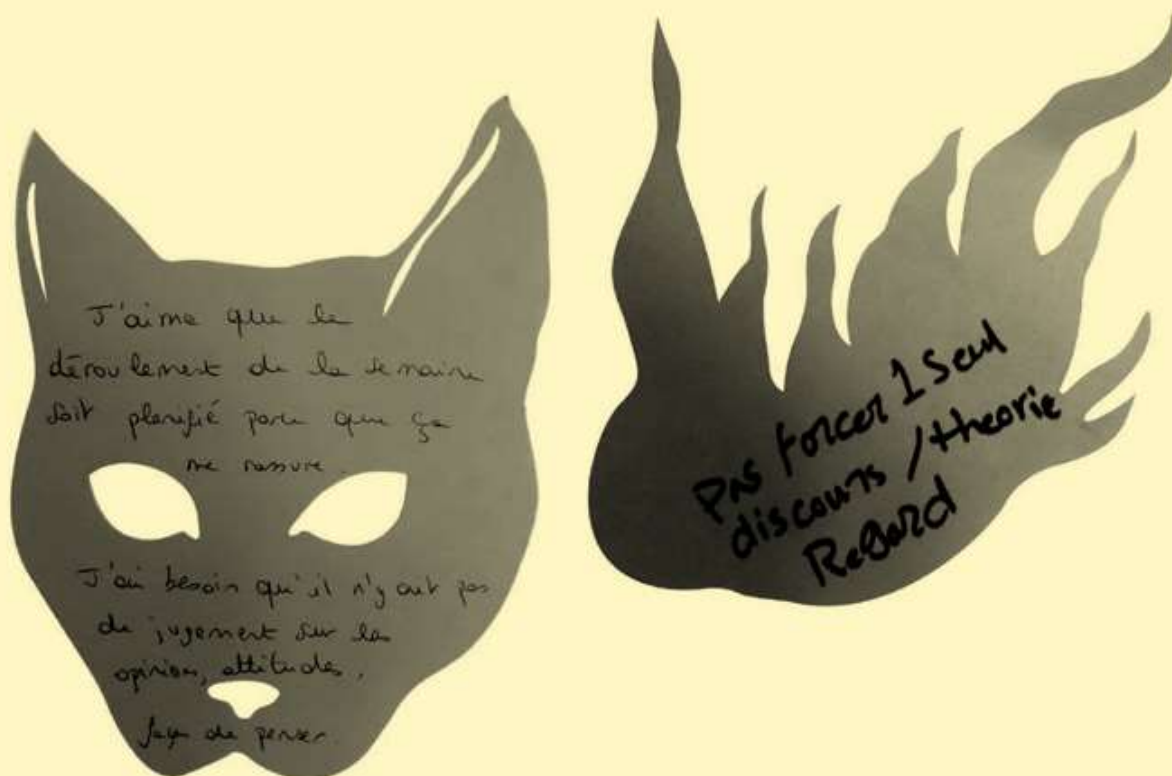 J'aime que le
déroulement de la semaine
soit planifié parce que ça
me rassure.
J'ai besoin qu'il n'y ait pas
de jugement sur les
opinions, attitudes,
façon de penser.
Pas forcer 1 seul
discours / theorie
Regard